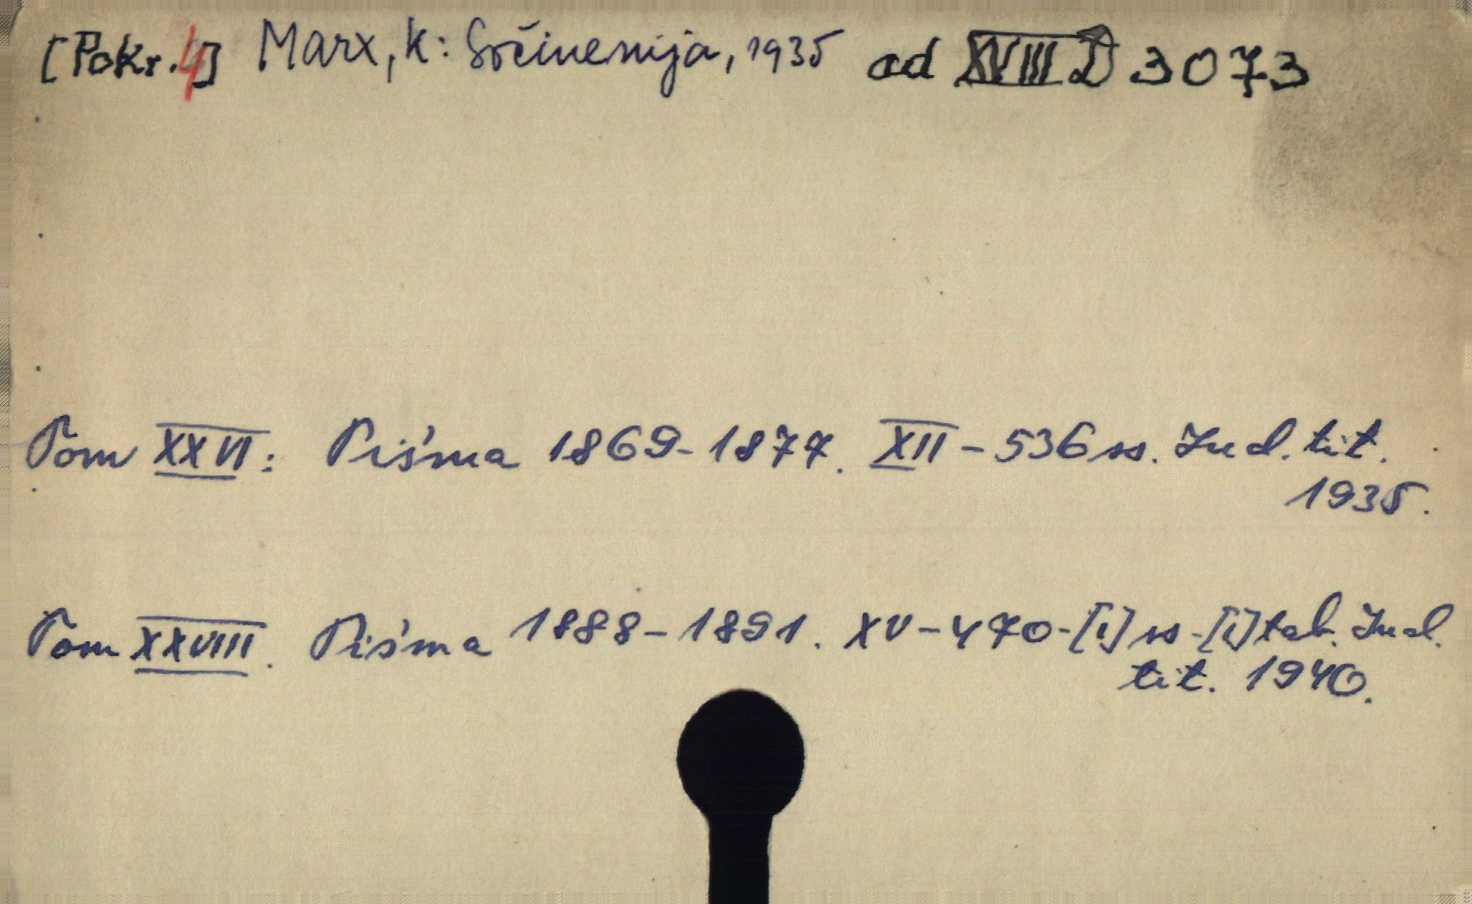 [Pokr. 4] Marx, K: Sočinenija, 1935 ad XVIII D 3073
Tom XXVI: Piśma 1869-1877. XII - 536 ss. Ind. tit.
1935.
Tom XXVIII. Piśma 1888-1891. XV-470-[1] ss-[1] tab. Ind.
tit. 1940.